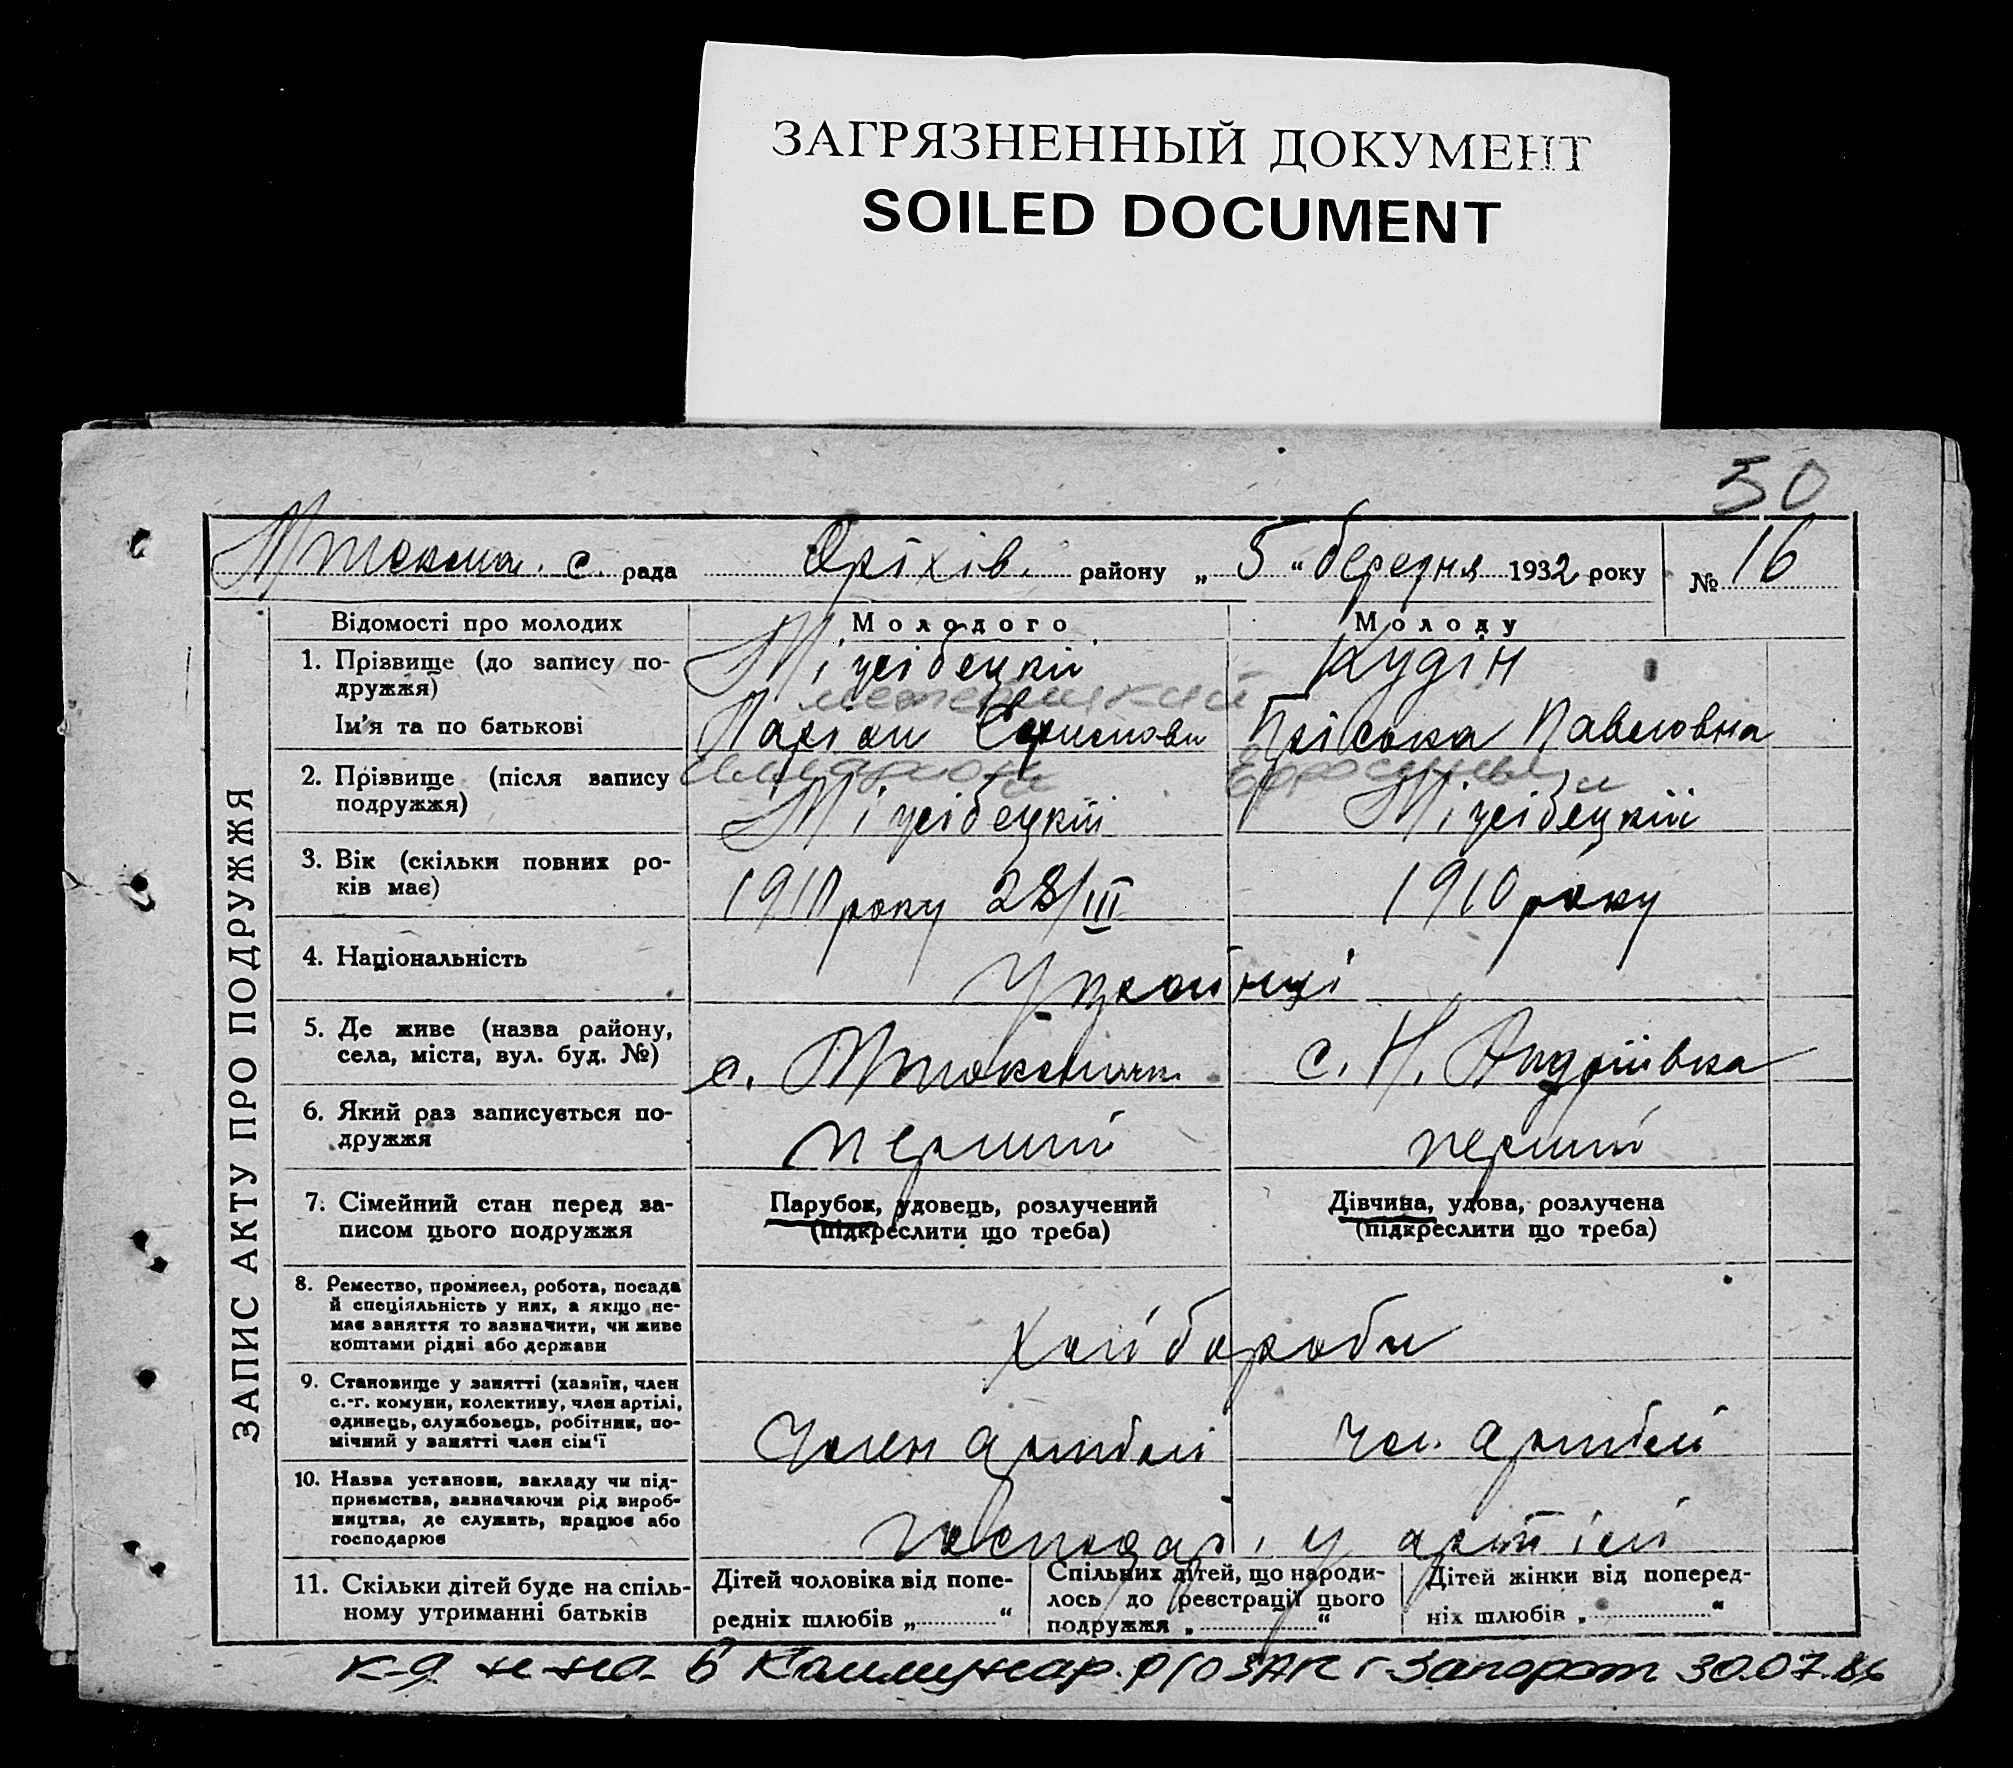 ЗАГРЯЗНЕННЫЙ ДОКУМЕНТ
SOILED DOCUMENT
50
с. рада Оріхів. району „ 5 “ березня 1932 року № 16
ЗАПИС АКТУ ПРО ПОДРУЖЖЯ
Відомості про молодих
Молодого
Молоду
1. Прізвище (до запису по-
дружжя)
Кудін
Ім'я та по батькові
Ларіон
Пріська Павловна
2. Прізвище (після запису
подружжя)
3. Вік (скільки повних ро-
ків має)
року 28/III
1910 року
4. Національність
Українці
5. Де живе (назва району,
села, міста, вул. буд. №)
с.
с. Н. Андріївка
6. Який раз записується по-
дружжя
перший
перший
7. Сімейний стан перед за-
писом цього подружжя
Парубок, удовець, розлучений
(підкреслити що треба)
Дівчина, удова, розлучена
(підкреслити що треба)
8. Ремество, промисел, робота, посада
й спеціяльність у них, а якщо не-
має заняття то зазначити, чи живе
коштами рідні або держави
хліборобы
9. Становище у занятті (хазяїн, член
с.-г. комуни, колективу, член артілі,
одинець, службовець, робітник, по-
мічний у занятті член сім'ї
Член
Чл.
10. Назва установи, закладу чи під-
приємства, зазначаючи рід вироб-
ництва, де служить, працює або
господарює
господар. у артілі
11. Скільки дітей буде на спіль-
ному утриманні батьків
Дітей чоловіка від попе-
редніх шлюбів „ “
Спільних дітей, що народи-
лось до реєстрації цього
подружжя „ “
Дітей жінки від поперед-
ніх шлюбів „ “
в Коммунар. р/о ЗАГС г Запорож 30.07.86